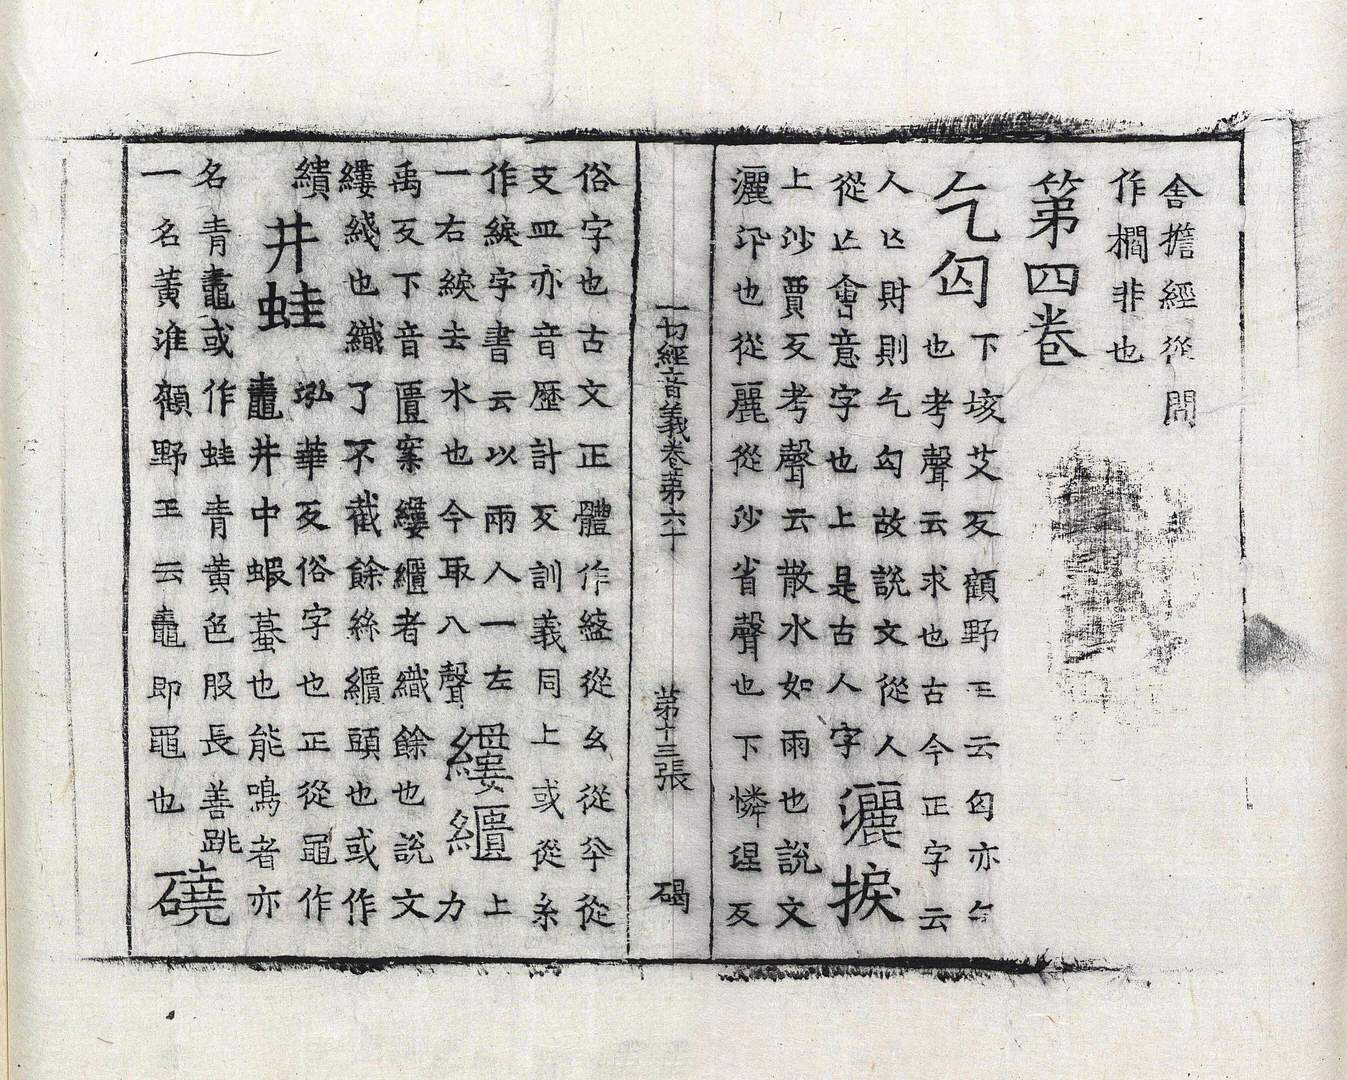 舍擔經從閒
作櫚非也
第四卷
乞匃
下垓艾反顧野王云匃亦
也考聲云求也古今正字云
人亾財則乞匃故說文從人
從亾會意字也上是古人字
灑捩
上沙賈反考聲云散水如雨也說文
灑汛也從麗從沙省聲也下憐徑反
一切經音義卷第六十　第十三張　碣
俗字也古文正體作盭從幺從𢆉從
支皿亦音歷計反訓義同上或從糸
作綟字書云以兩人一左
一右綟去水也今取八聲
縷繼
上力
禹反下音匱案縷繼者織餘也說文
縷綫也織了不截餘絲繼頭也或作
繢
井蛙
泓華反俗字也正從黽作
鼃井中蝦蟇也能鳴者亦
名青鼃或作蛙青黃色股長善跳
一名黃淮顧野王云鼃即黽也
磽